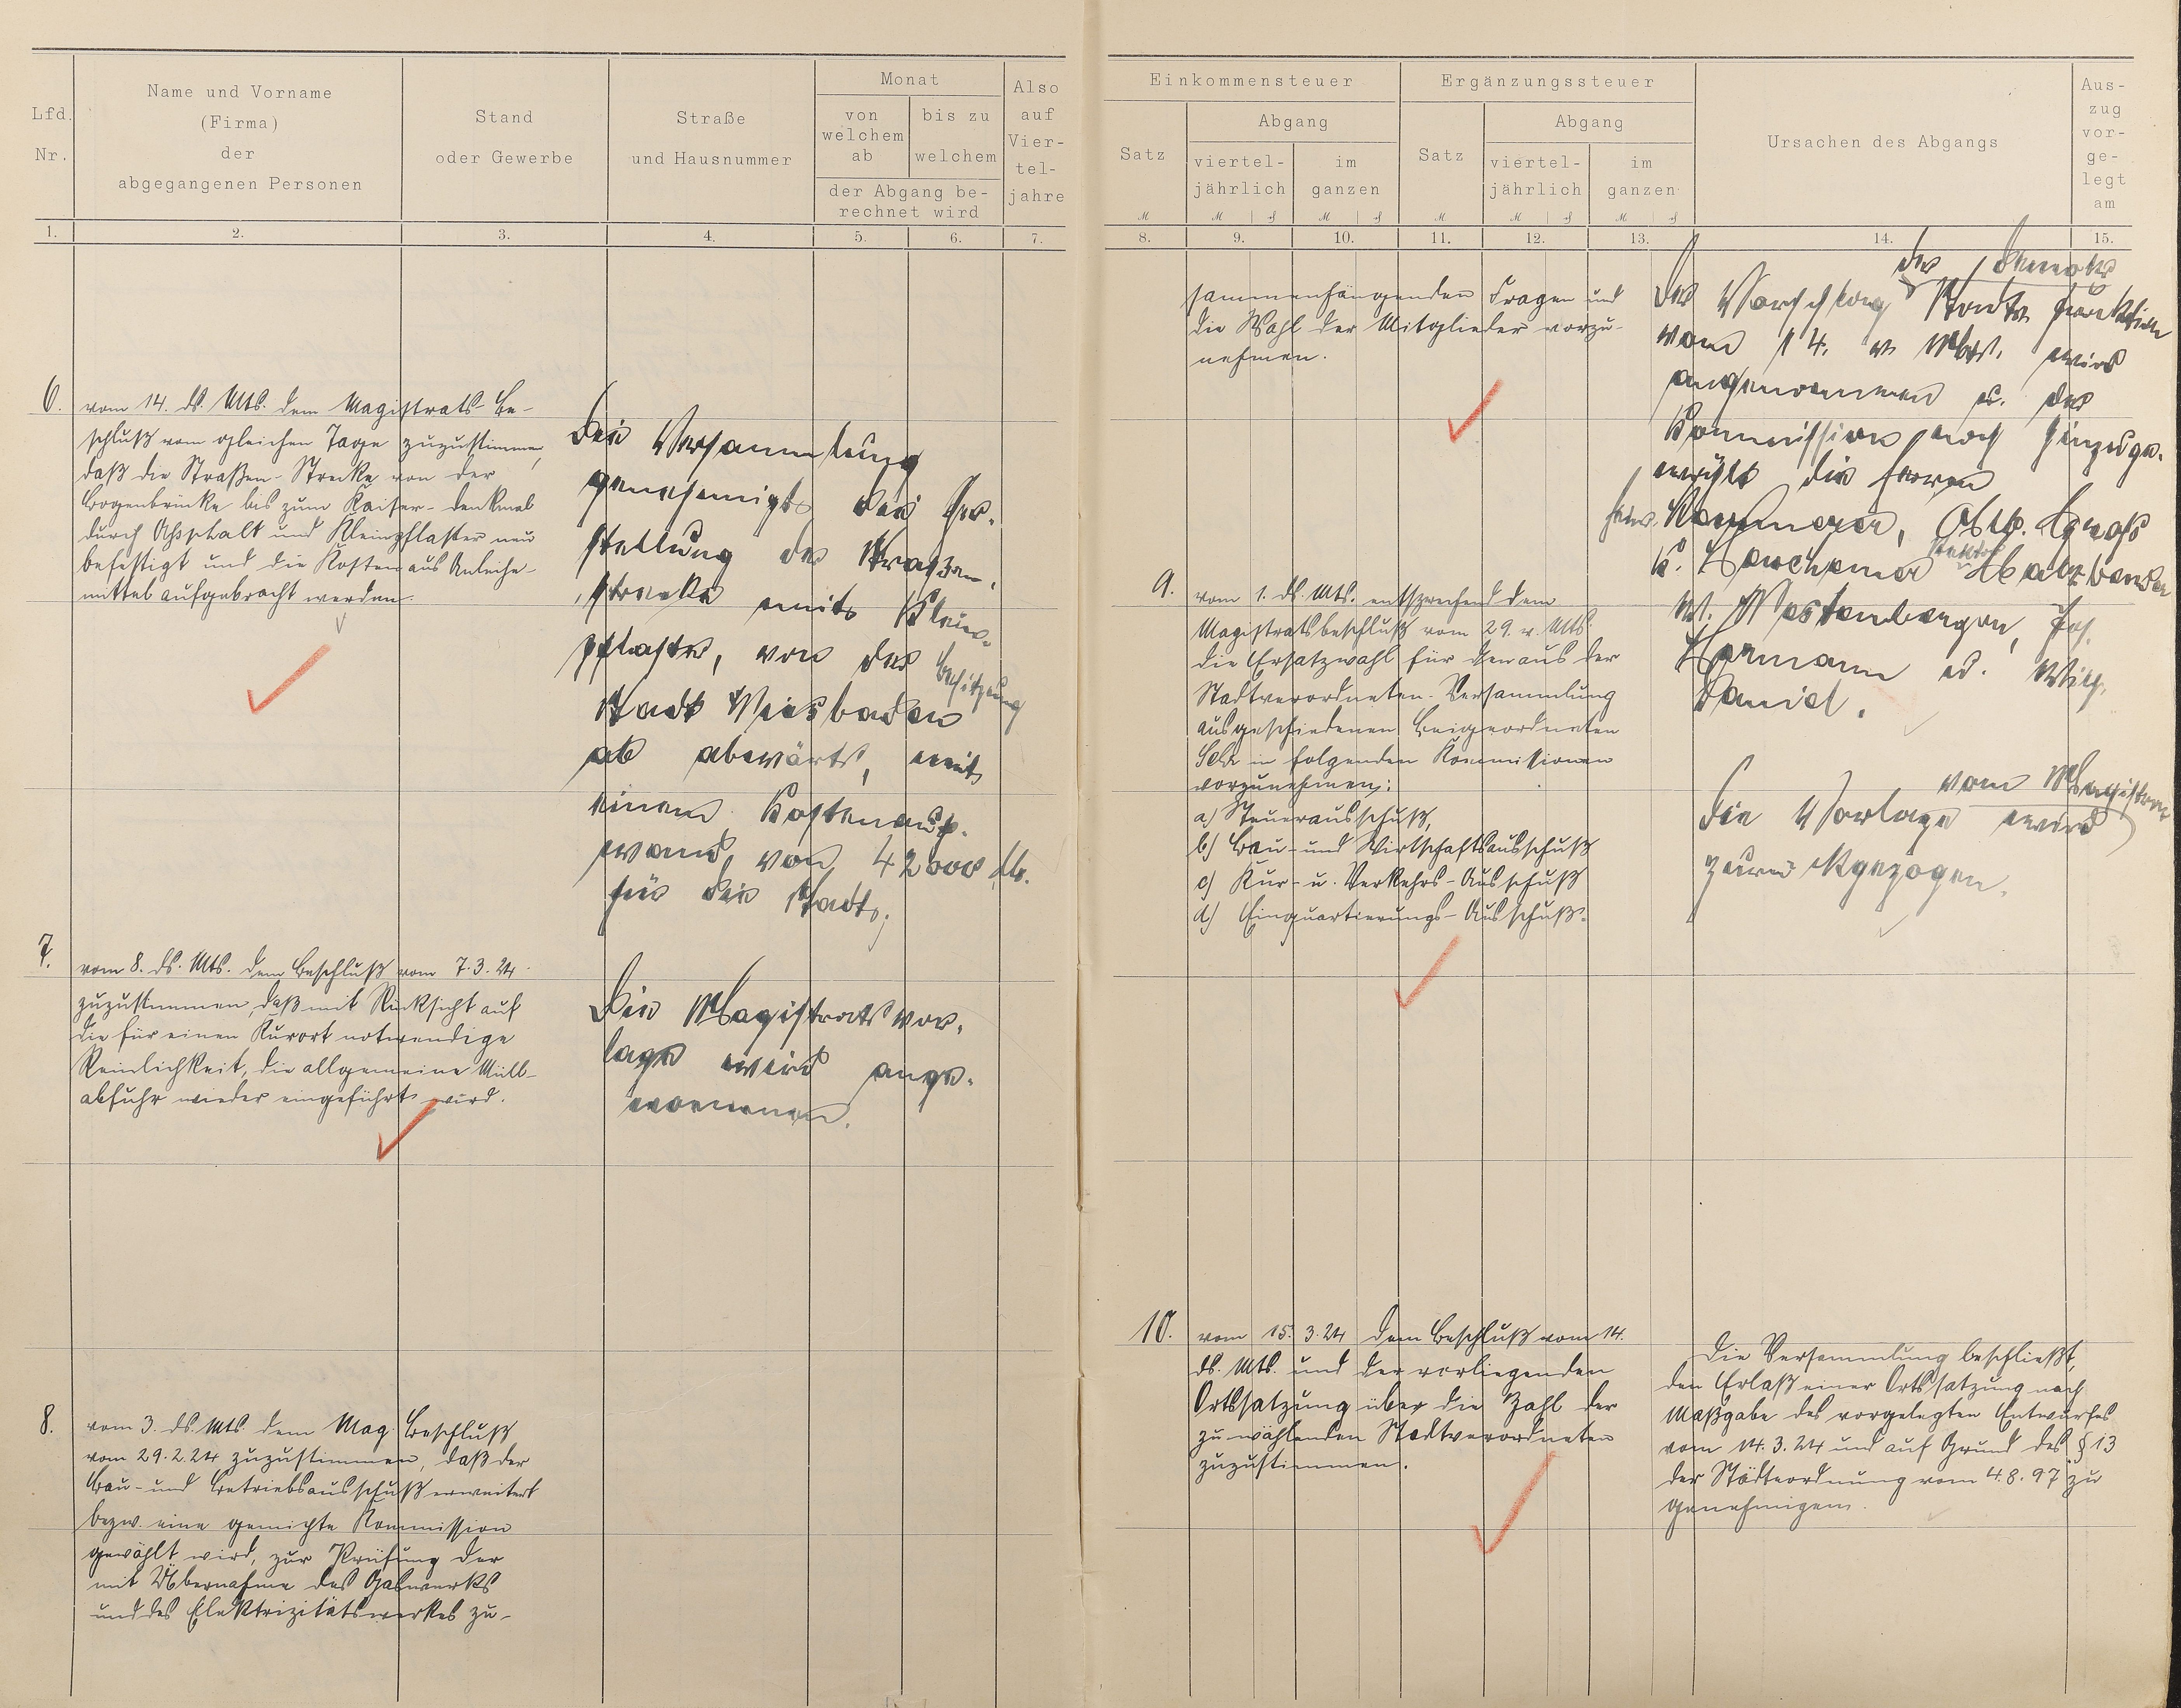 Lfd. Nr.
Name und Vorname
(Firma)
der
abgegangenen Personen
Stand
oder Gewerbe
Straße
und Hausnummer
Monat
von welchem ab
bis zu welchem
der Abgang be-
rechnet wird
Also
auf
Vier-
tel-
jahre
1. 2. 3. 4. 5. 6. 7.
6.
vom 14. ds. Mts. dem Magistrats-Be-
schluß vom gleichen Tage zuzustimmen,
daß die Straßen-Strecke von der
Bogenbrücke bis zum Kaiser-Denkmal
durch Asphalt und Kleinpflaster neu
befestigt und die Kosten aus Anleihe-
mittel aufgebracht werden.
Die Versammlung
genehmigt die Her-
stellung der Straßen-
strecke mit Klein-
pflaster, von der Besitzung
Stadt Wiesbaden
ab abwärts, mit
einem Kostenauf-
wand von 42000 M.
für die Stadt.
7.
vom 8. ds. Mts. dem Beschluß vom 7.3.24
zuzustimmen, daß mit Rücksicht auf
die für einen Kurort notwendige
Reinlichkeit, die allgemeine Müll-
abfuhr wieder eingeführt wird.
Die Magistratsvor-
lage wird ange-
nommen.
8.
vom 3. ds. Mts. dem Mag. Beschluß
vom 29.2.24 zuzustimmen, daß der
Bau- und Betriebsausschuß erweitert
bezw. eine gemischte Kommission
gewählt wird, zur Prüfung der
mit Übernahme des Gaswerks
und des Elektrizitätswerkes zu-
Einkommensteuer
Satz
Abgang
viertel-
jährlich
im
ganzen
Ergänzungssteuer
Satz
Abgang
viertel-
jährlich
im
ganzen
Ursachen des Abgangs
Aus-
zug
vor-
ge-
legt
am
8. 9. 10. 11. 12. 13. 14. 15.
sammenhängenden Fragen und
die Wahl der Mitglieder vorzu-
nehmen.
der
Der Vorschlag
vom 14. v. Mts. wird
angenommen u. der
Kommission noch hinzuge-
wählt die Herren
W. Westenberger, Jos.
Hermann u. Wilh.
Daniel.
9.
vom 1. ds. Mts. entsprechend dem
Magistratsbeschluß vom 29. v. Mts.
die Ersatzwahl für den aus der
Stadtverordneten-Versammlung
ausgeschiedenen Beigeordneten
in folgenden Kommissionen
vorzunehmen:
a) Steuerausschuß,
b) Bau- und Wirtschaftsausschuß
c) Kur- u. Verkehrs-Ausschuß
d) Einquartierungs-Ausschuß.
vom Magistrat
Die Vorlage wird
zurückgezogen.
10.
vom 15.3.24 dem Beschluß vom 14.
ds. Mts. und der vorliegenden
Ortssatzung über die Zahl der
zu wählenden Stadtverordneten
zuzustimmen.
Die Versammlung beschließt,
den Erlaß einer Ortssatzung nach
Maßgabe des vorgelegten Entwurfes
vom 14.3.24 und auf Grund des § 13
der Städteordnung vom 4.8.97 zu
genehmigen.